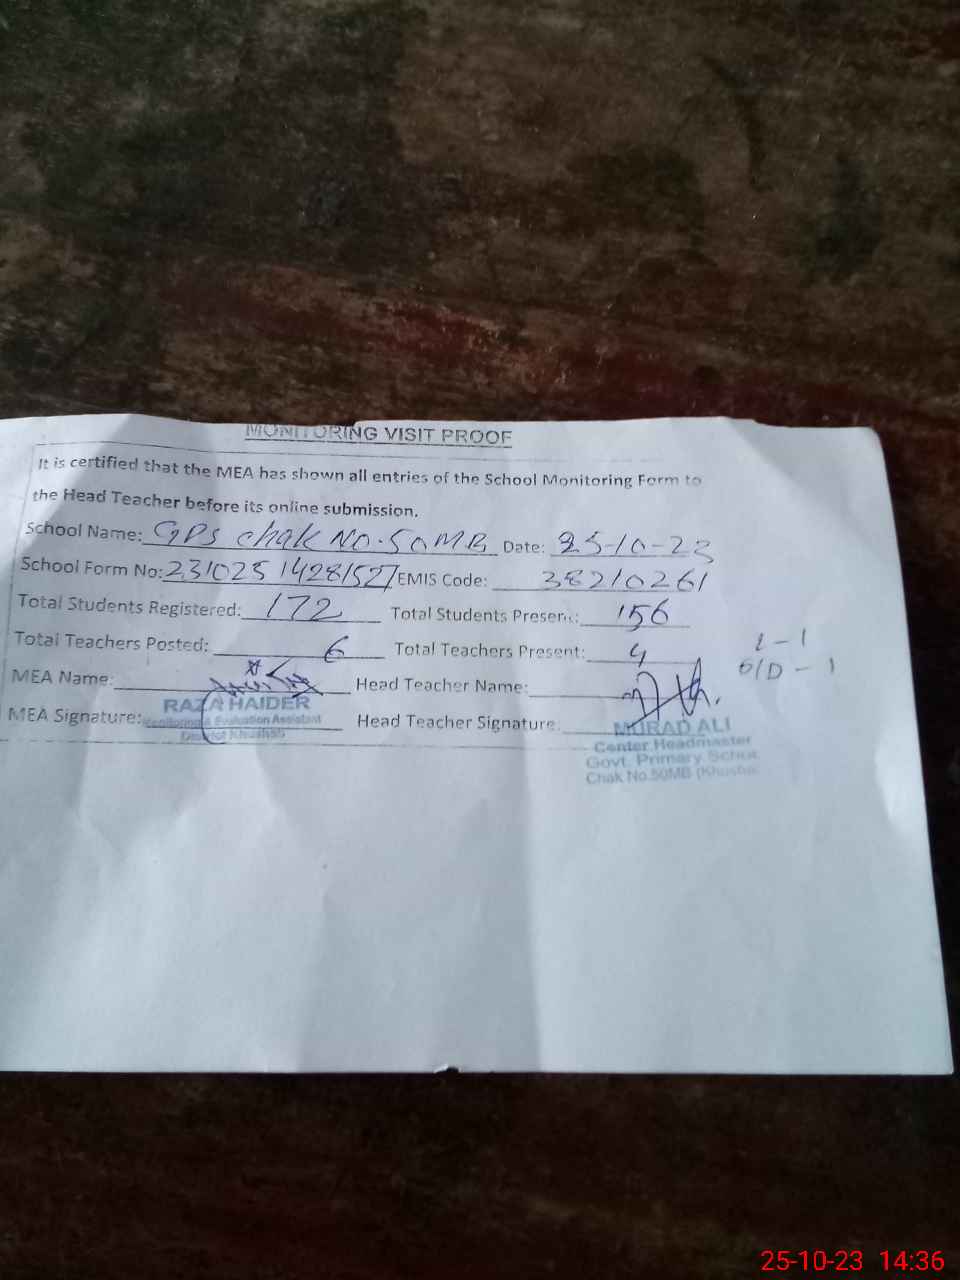 MONITORING VISIT PROOF
It is certified that the MEA has shown all entries of the School Monitoring Form to
the Head Teacher before its online submission.
School Name: GPS chak No.50MB Date: 25-10-23
School Form No: 23102514281527 EMIS Code: 38210261
Total Students Registered: 172 Total Students Present: 156
Total Teachers Posted: 6 Total Teachers Present: 4
L - 1
O/D - 1
MEA Name: Head Teacher Name:
RAZA HAIDER
MEA Signature: Monitoring & Evaluation Assistant Head Teacher Signature:
District Khushab
MURAD ALI
Center Headmaster
Govt. Primary School
Chak No.50MB (Khushab
25-10-23 14:36